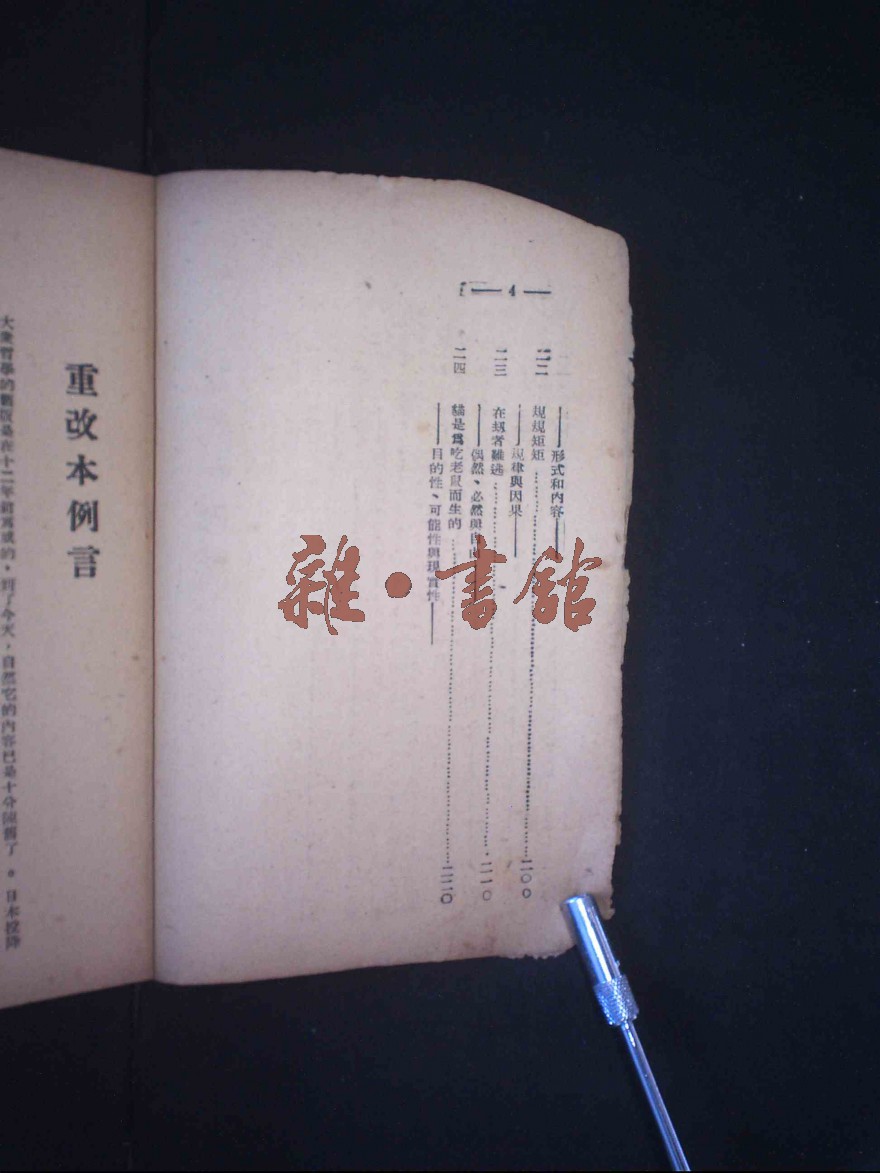 — 4 —
——形式和內容——
二二 規規矩矩……二〇〇
——規律與因果——
二三 在刼者難逃……二一〇
——偶然、必然與
二四 貓是爲吃老鼠而生的……二二〇
——目的性、可能性與現實性——
重改本例言
大衆哲學的舊版是在十二年前寫成的，到了今天，自然它的內容已是十分陳舊了。日本投降
雜·書館